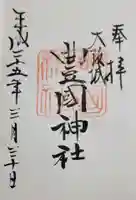 奉拝
大阪城
豊國神社
平成二十五年三月三十日